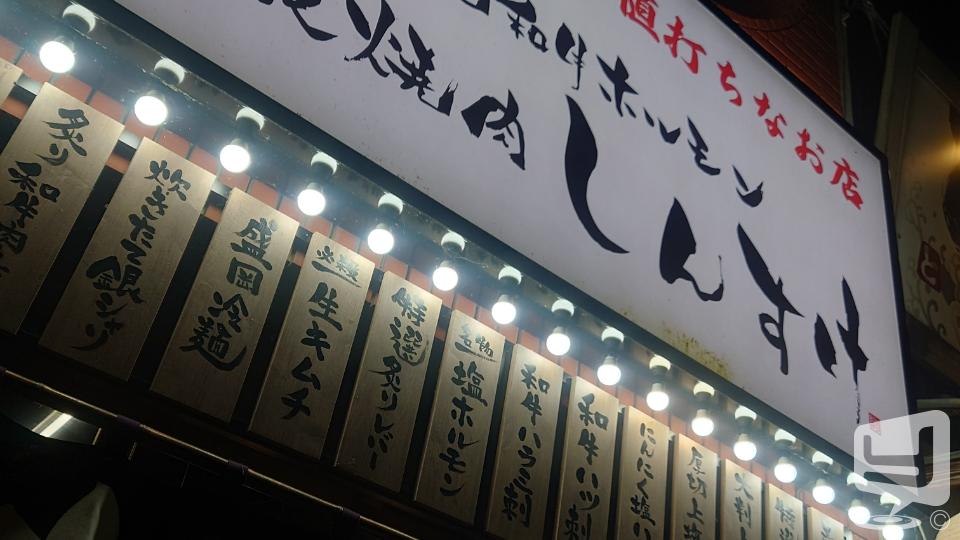 直打ちなお店
和牛ホルモン
焼肉
しんすけ
炙り和牛肉
炊きたて銀シャリ
盛岡冷麺
生キムチ
特選炙りレバー
名物塩ホルモン
和牛ハラミ刺
和牛ハツ刺
にんにく塩
厚切上
特選